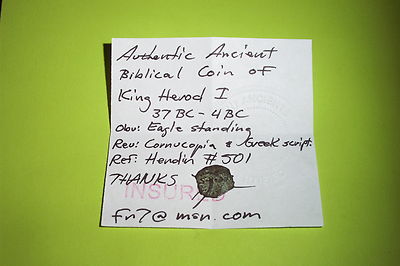 Authentic Ancient
Biblical Coin of
King Herod I
37 BC - 4 BC
Obv: Eagle standing
Rev: Cornucopia & Greek script.
Ref: Hendin # 501
THANKS
INSURED
fr7@msn.com